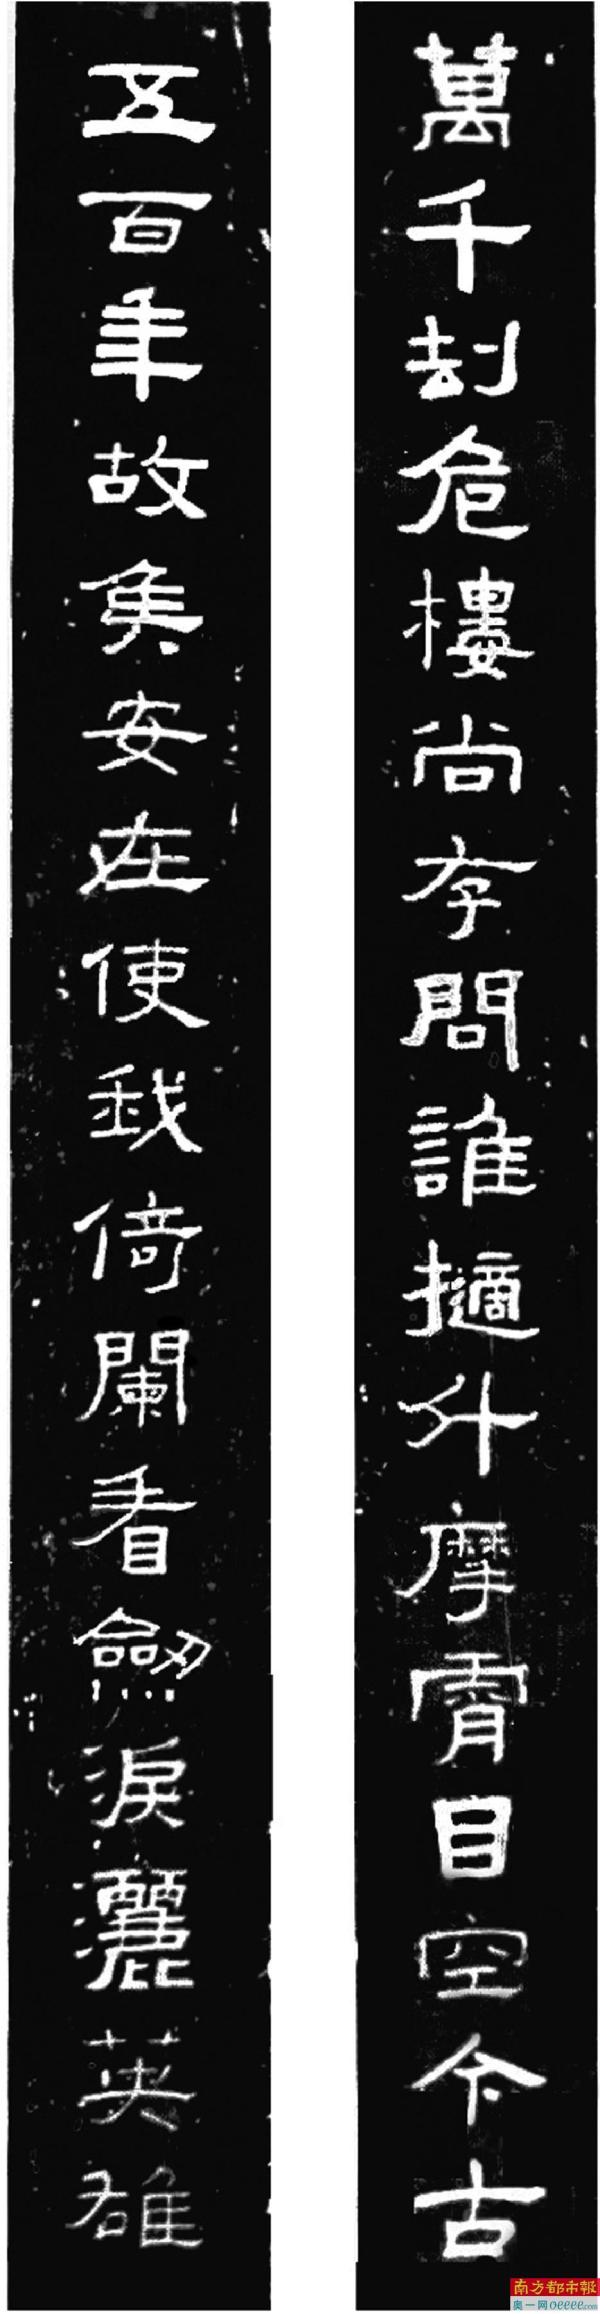 萬千劫危樓尚存問誰擿斗摩霄目空今古
五百年故侯安在使我倚闌看劒淚灑英雄
南方都市報
奥一网oeeee.com